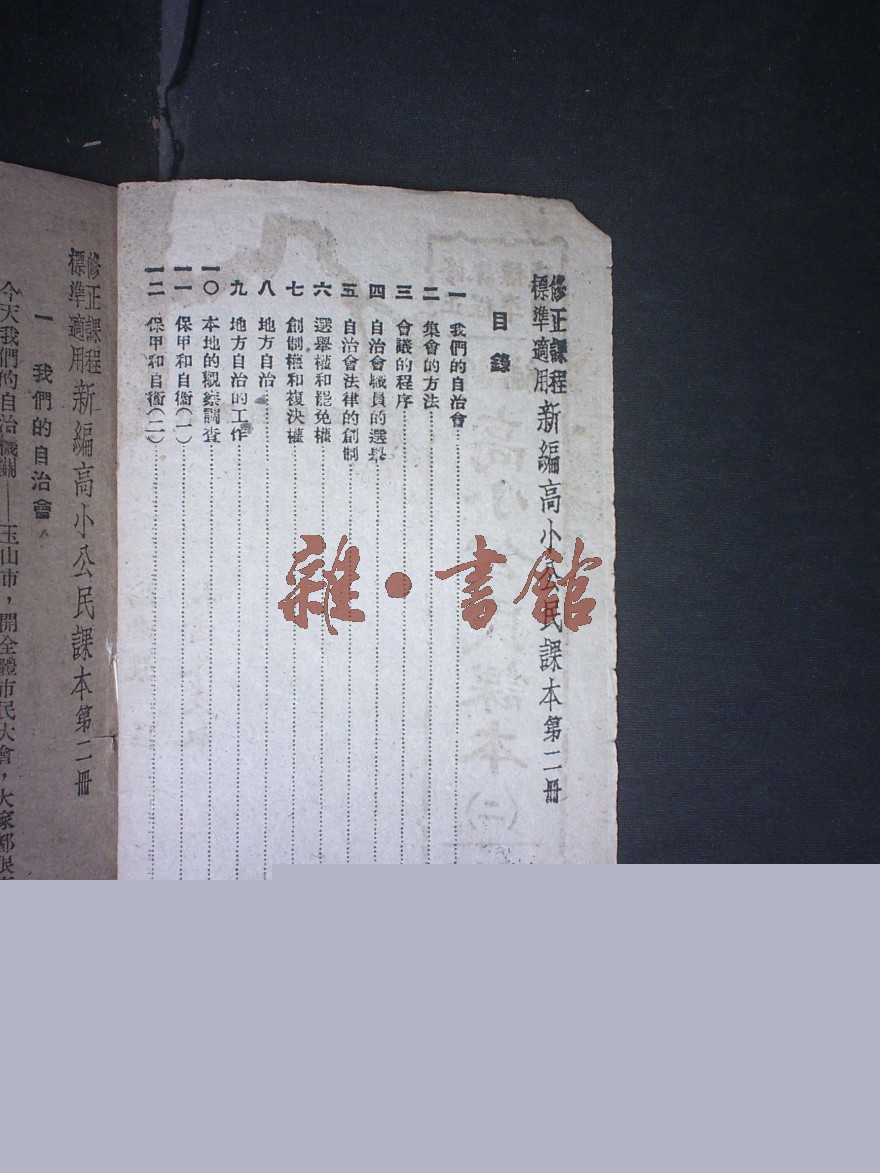 修正課程標準適用 新編高小公民課本第二冊
目錄
一 我們的自治會
二 集會的方法
三 會議的程序
四 自治會職員的選舉
五 自治會法律的創制
六 選舉權和罷免權
七 創制權和複決權
八 地方自治
九 地方自治的工作
一〇 本地的觀察調查
一一 保甲和自衞(一)
一二 保甲和自衞(二)
修正課程標準適用 新編高小公民課本第二冊
一 我們的自治會
今天我們的自治機關——玉山市,開全體市民大會,大家都很
雜·書館